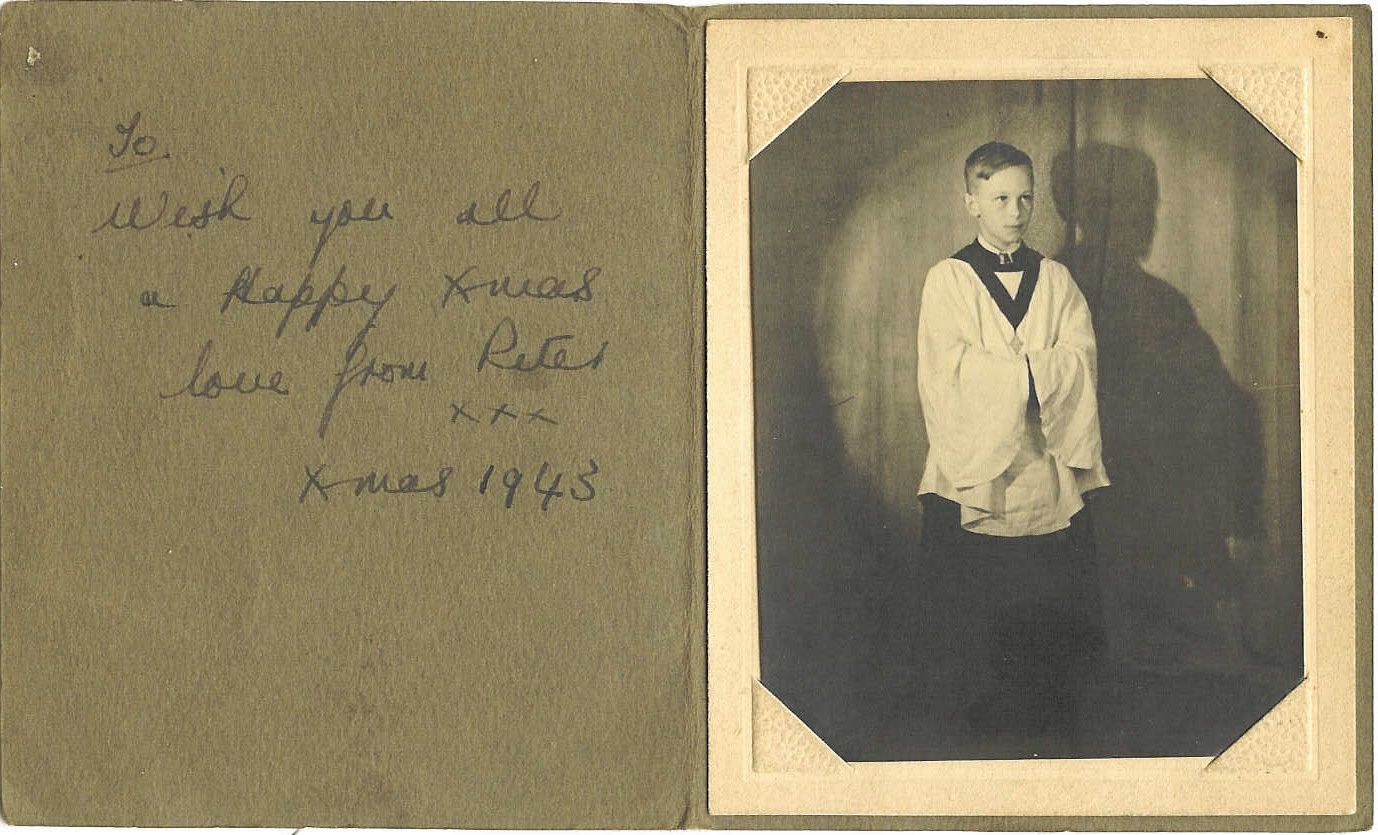 To
Wish you all
a Happy Xmas
love from Peter
x x x
Xmas 1943